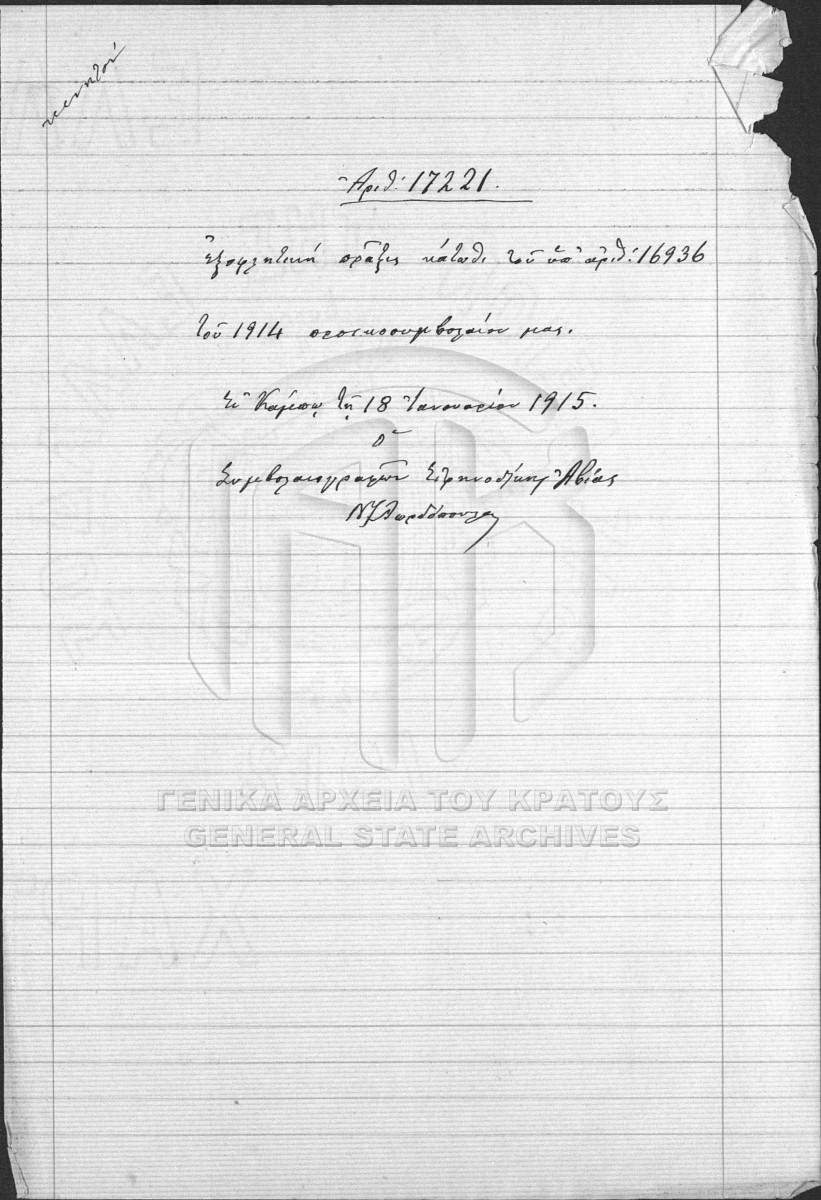 κινητού
Ἀριθ. 17221.
Ἐξοφλητικὴ πρᾶξις κάτωθι τοῦ ὑπ' ἀριθ: 16936
τοῦ 1914 προικοσυμβολαίου μας.
Ἐν Κάμπῳ τῇ 18 Ἰανουαρίου 1915.
Ὁ
Συμβολαιογραφῶν Εἰρηνοδίκης Ἀβίας
ΓΕΝΙΚΑ ΑΡΧΕΙΑ ΤΟΥ ΚΡΑΤΟΥΣ
GENERAL STATE ARCHIVES